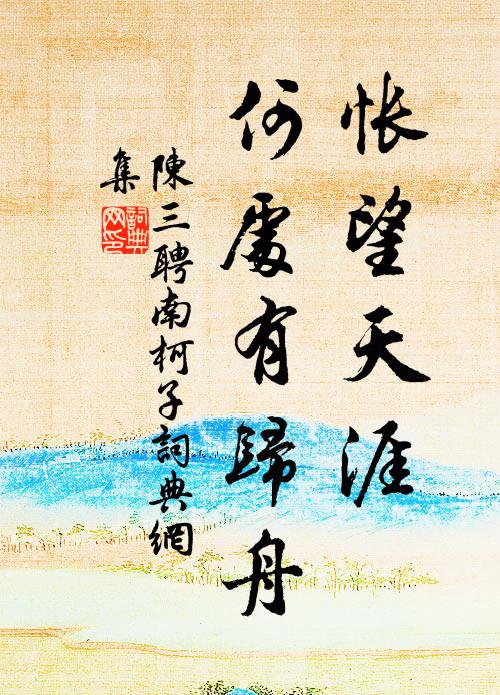 悵望天涯
何處有歸舟
陳三聘南柯子詞典網
集
詞典
网印